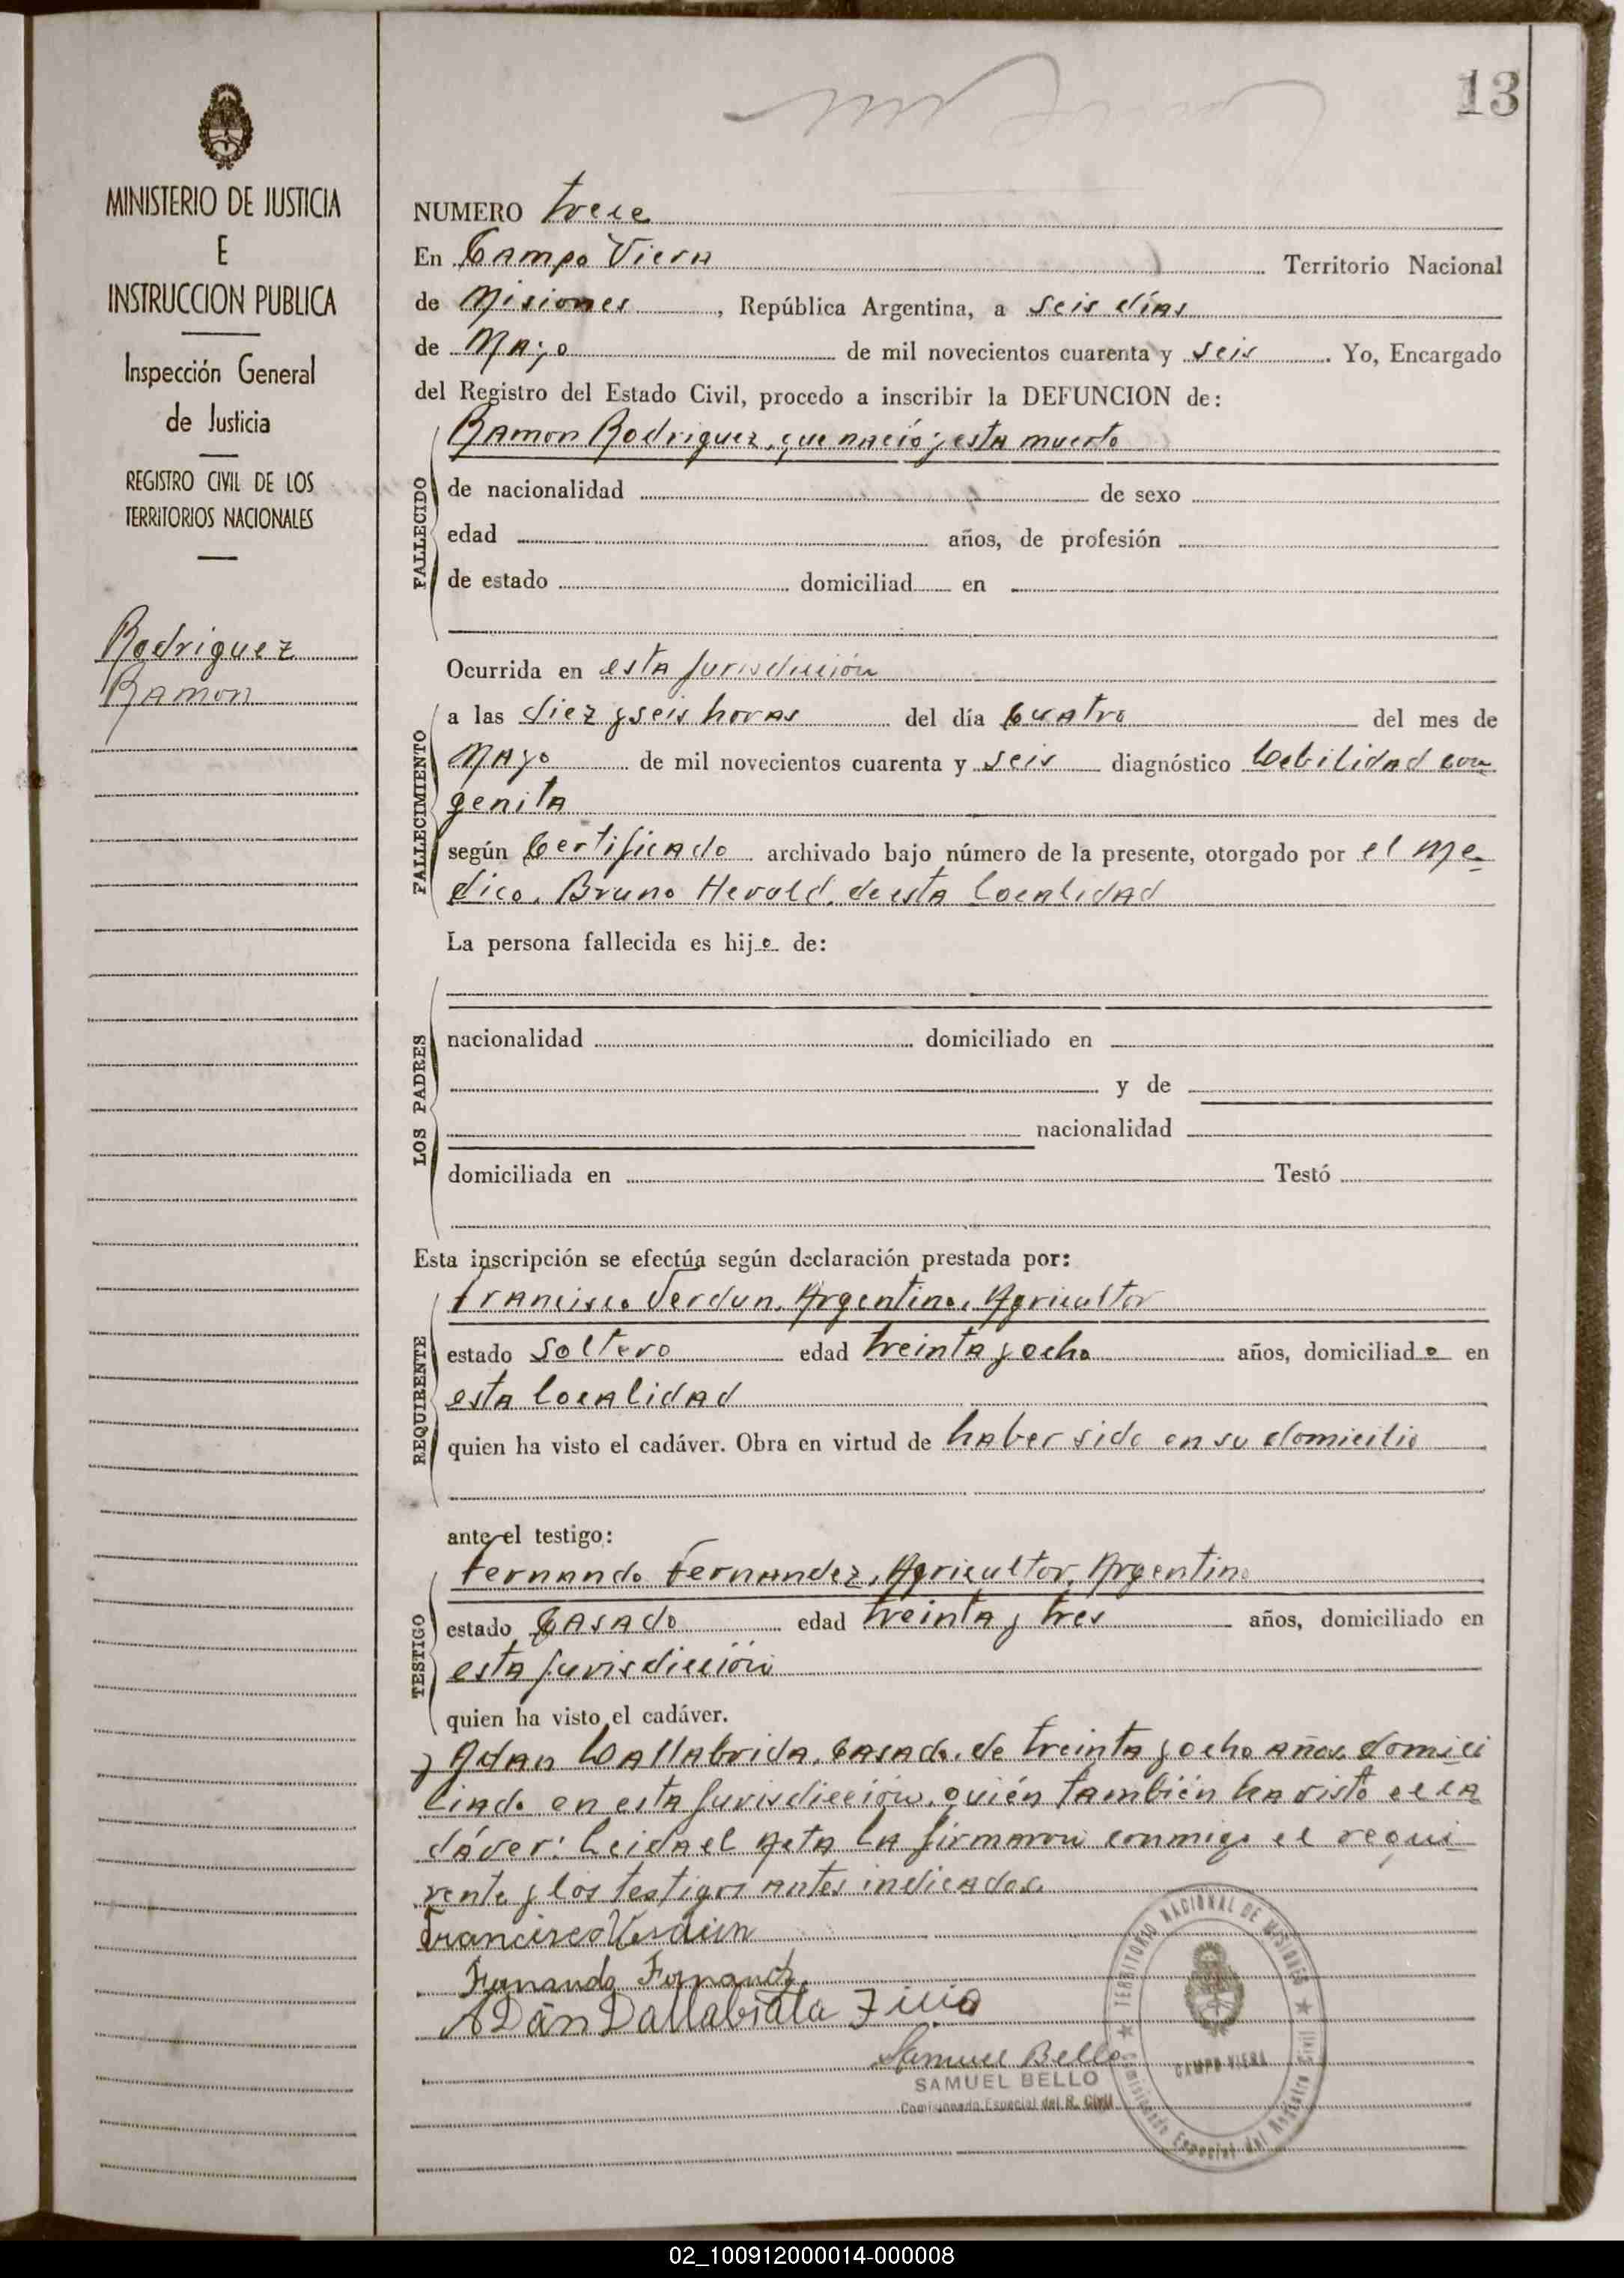 13
MINISTERIO DE JUSTICIA
E
INSTRUCCION PUBLICA
Inspección General
de Justicia
REGISTRO CIVIL DE LOS
TERRITORIOS NACIONALES
Rodriguez
Ramon
NUMERO trece
En Campo Viera Territorio Nacional
de Misiones, República Argentina, a seis días
de Mayo de mil novecientos cuarenta y seis. Yo, Encargado
del Registro del Estado Civil, procedo a inscribir la DEFUNCION de:
FALLECIDO
Ramon Rodriguez, que nació y esta muerto
de nacionalidad de sexo
edad años, de profesión
de estado domiciliad en
Ocurrida en esta Jurisdicción
FALLECIMIENTO
a las diez y seis horas del día Cuatro del mes de
Mayo de mil novecientos cuarenta y seis diagnóstico Debilidad con
genita
según Certificado archivado bajo número de la presente, otorgado por el Me-
dico, Bruno Herold, de esta Localidad
La persona fallecida es hijo de:
LOS PADRES
nacionalidad domiciliado en
y de
nacionalidad
domiciliada en Testó
Esta inscripción se efectúa según declaración prestada por:
REQUIRENTE
Francisco Verdun, Argentino, Agricultor
estado Soltero edad treinta y ocho años, domiciliado en
esta Localidad
quien ha visto el cadáver. Obra en virtud de haber sido en su domicilio
ante el testigo:
TESTIGO
Fernando Fernandez, Agricultor, Argentino
estado Casado edad treinta y tres años, domiciliado en
esta Jurisdicción
quien ha visto el cadáver.
y Adan Dallabrida, Casado, de treinta y ocho años domici
liado en esta Jurisdicción, quién también ha visto el ca
dáver: Leida el Acta la firmaron conmigo el requi-
rente y los testigos antes indicados.
Francisco Verdun
Fernando Fernandz
ADán Dallabrida
Samuel Bello
SAMUEL BELLO
Comisionado Especial del R. Civil
TERRITORIO NACIONAL DE MISIONES
CAMPO VIERA
Comisionado Especial del Registro Civil
02_100912000014-000008